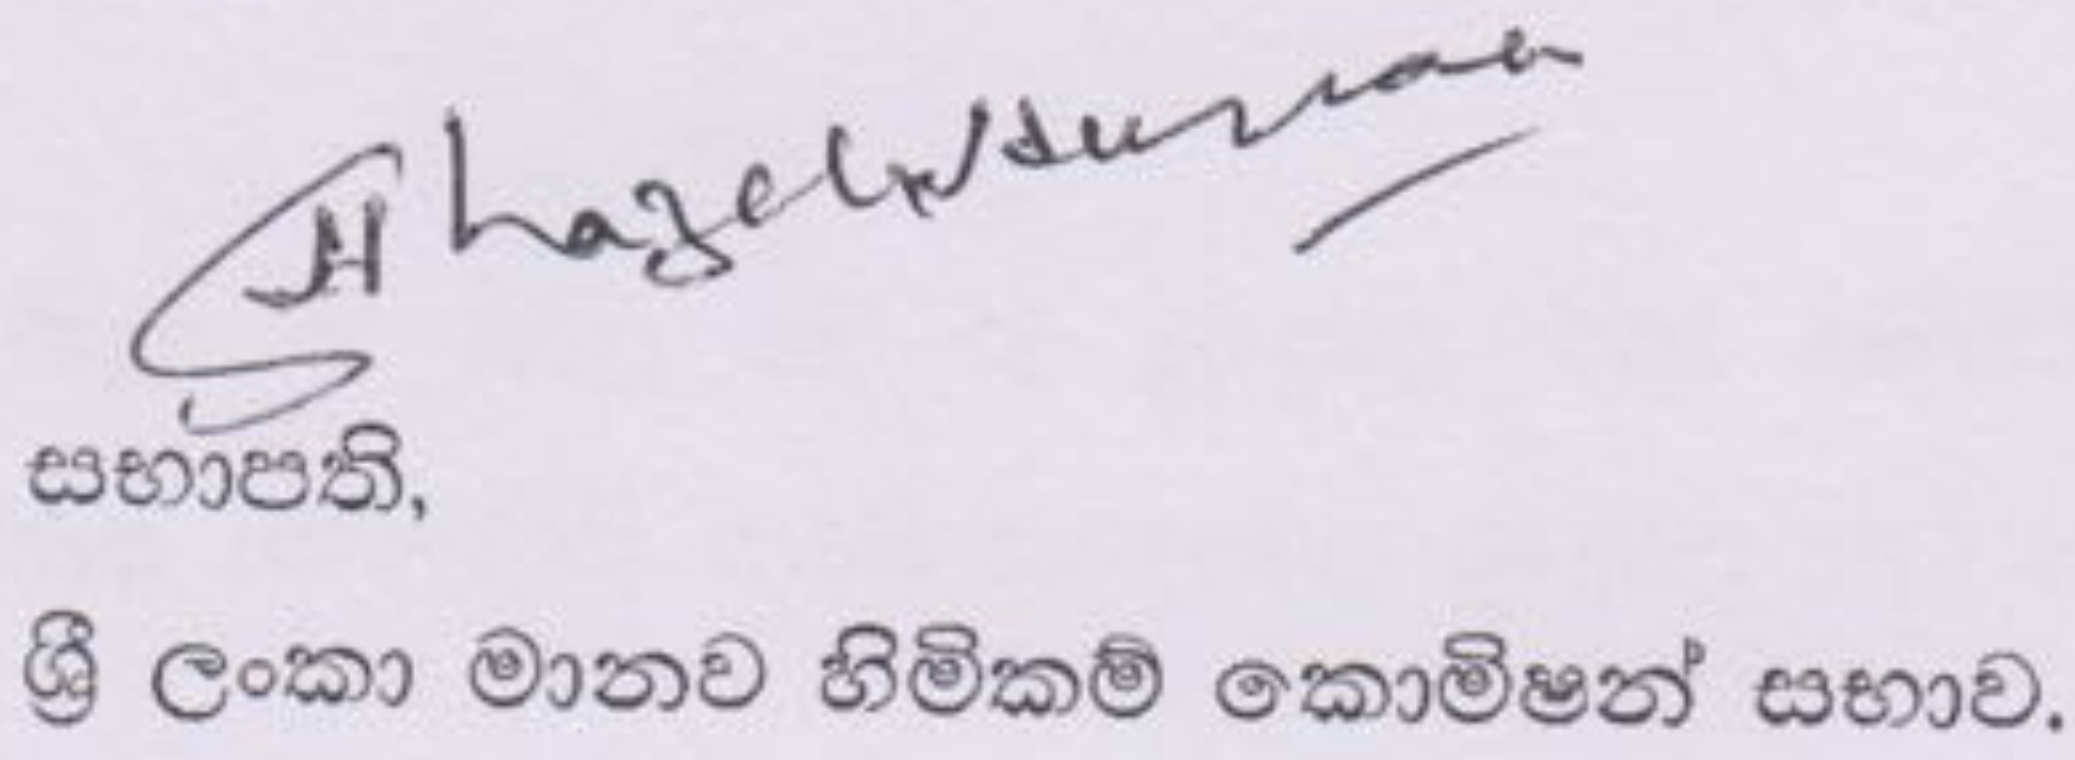 සභාපති,
ශ්‍රී ලංකා මානව හිමිකම් කොමිෂන් සභාව.